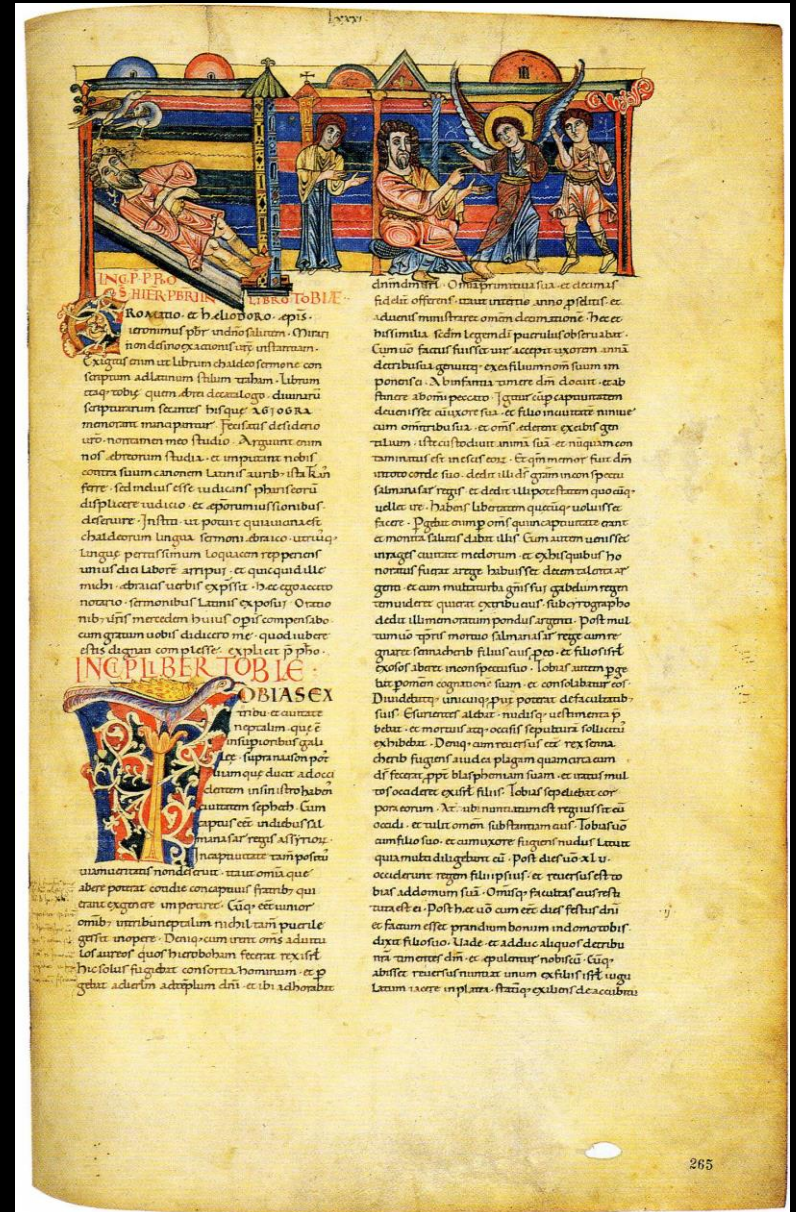 LXXXI
INCP·P·PRO
S HIER·PBRI IN LIBRO·TOBIÆ·
CROMATIO·et heliodoro·epis·
ieronimus pbr in dño salutem·Mirari
non desino exactionis urę instantiam·
Exigitis enim ut librum chaldeo sermone con
scriptum ad latinum stilum traham·librum
itaq· tobię quem ebrei de catalogo·diuinarū
scripturarum secantes hisque AGIOGRA
memorant mancipantur·Feci satis desiderio
uro·non tamen meo studio·Arguunt enim
nos·ebreorum studia·et imputant nobis
contra suum canonem latinis aurib; ista
ferre·sed melius esse iudicans phariseorū
displicere iudicio·et eporum iussionibus·
deseruire·Institi·ut potui·et quia uicina est
chaldeorum lingua sermoni ebraico·utriusq·
linguę peritissimum loquacem repperiens
unius diei laborē arripui·et quicquid ille
michi·ebraicis uerbis expssit·hęc ego accito
notario·sermonibus latinis exposui·Oratio
nib; uris mercedem huius opis compensabo·
cum gratum uobis didicero me·quod iubere
estis dignati complesse·explicit p pho·
INCP LIBER TOBIE·
TOBIAS EX
tribu et ciuitate
neptalim·quę ē
in supioribus gali
lęę·supra naason post
uiam quę ducit ad occi
dentem in sinistro habens
ciuitatem sepheth·Cum
captus eēt in diebus sal
manasar regis ASSYRIOꝜ·
In captiuitate tam positus
uiam ueritatis non deseruit·ita ut omia que
abere poterat cotidie concaptiuis fratrib; qui
erant ex genere impertiret·Cūq; eēt iunior
omib; in tribu neptalim nichil tam puerile
gessit in opere·Deniq· cum irent oms ad uitu
los aureos quos hieroboham fecerat rex isrl
hic solus fugiebat consortia hominum·et p
gebat ad ierlm ad templum dni·et ibi adhorabat
dnm dm isrl·Omia primitiua sua·et decimas
fideliť offerens·ita ut in tertio anno pselitis·et
aduenis ministraret omem decimatione·hęc et
his similia scdm legem di puerulus obseruabat·
Cum uo factus fuisset uir accepit uxorem annā
de tribu sua genuitq· ex ea filium nom suum im
ponens ei·Ab infantia timere dm docuit·et ab
stinere ab omi peccato·Igitur cū p captiuitatem
deuenisset cū uxore sua·et filio in ciuitate niniue
cum omi tribu sua·et oms·ederent ex cibis gen
tilium·iste custodiuit animā suā·et nūquam con
taminatus est in escis eoꝝ·Et qm memor fuit dni
in toto corde suo·dedit illi ds gram in conspectu
salmanasar regis·et dedit illi potestatem quo cūq·
uellet ire·habens libertatem quęcūq· uoluisset
facere·Pgebat eum p oms qui in captiuitate erant
et monita salutis dabat illis Cum autem uenisset
in rages ciuitate medorum·et ex his quibus ho
noratus fuerat a rege habuisset decem talenta ar
genti·et cum multa turba gnis sui gabelum
dedit illi memoratum pondus argenti·Post mul
tum uo tpris mortuo salmanasar rege cum re
gnaret sennacherib filius eius p eo·et filios isrl
exosos aberet in conspectu suo·Tobias autem pge
bat p omem cognatione suam·et consolabatur eos·
Diuidebatq· unicuiq· put poterat de facultatib;
suis·Esurientes alebat·nudisq· uestimenta p
bebat·et mortuis atq· occisis sepulturā sollicitus
exhibebat·Deniq· cum reuersus eēt rex senna
cherib fugiens a iudea plagam quam circa eum
ds fecerat ppt blasphemiam suam·et iratus mul
tos occideret ex isrl filiis·Tobias sepeliebat cor
pora eorum·At·ubi nuntiatum est regi iussit eū
occidi·et tulit omem substantiam eius·Tobias uo
cum filio suo·et cum uxore fugiens nudus latuit
quia multi diligebant eū·Post dies uo xl v·
occiderunt regem filii ipsius·et reuersus est to
bias ad domum suā·Omisq· facultas eius resti
tuta est ei·Post hęc uo cum eēt dies festus dni
et factum esset prandium bonum in domo tobis·
dixit filio suo·Uade·et adduc aliquos de tribu
nra timentes dm·et epulentur nobiscū·Cūq·
abisset reuersus nuntiat unum ex filiis isrl iugu
latum iacere in platea·statiq· exiliens de accubitu
265